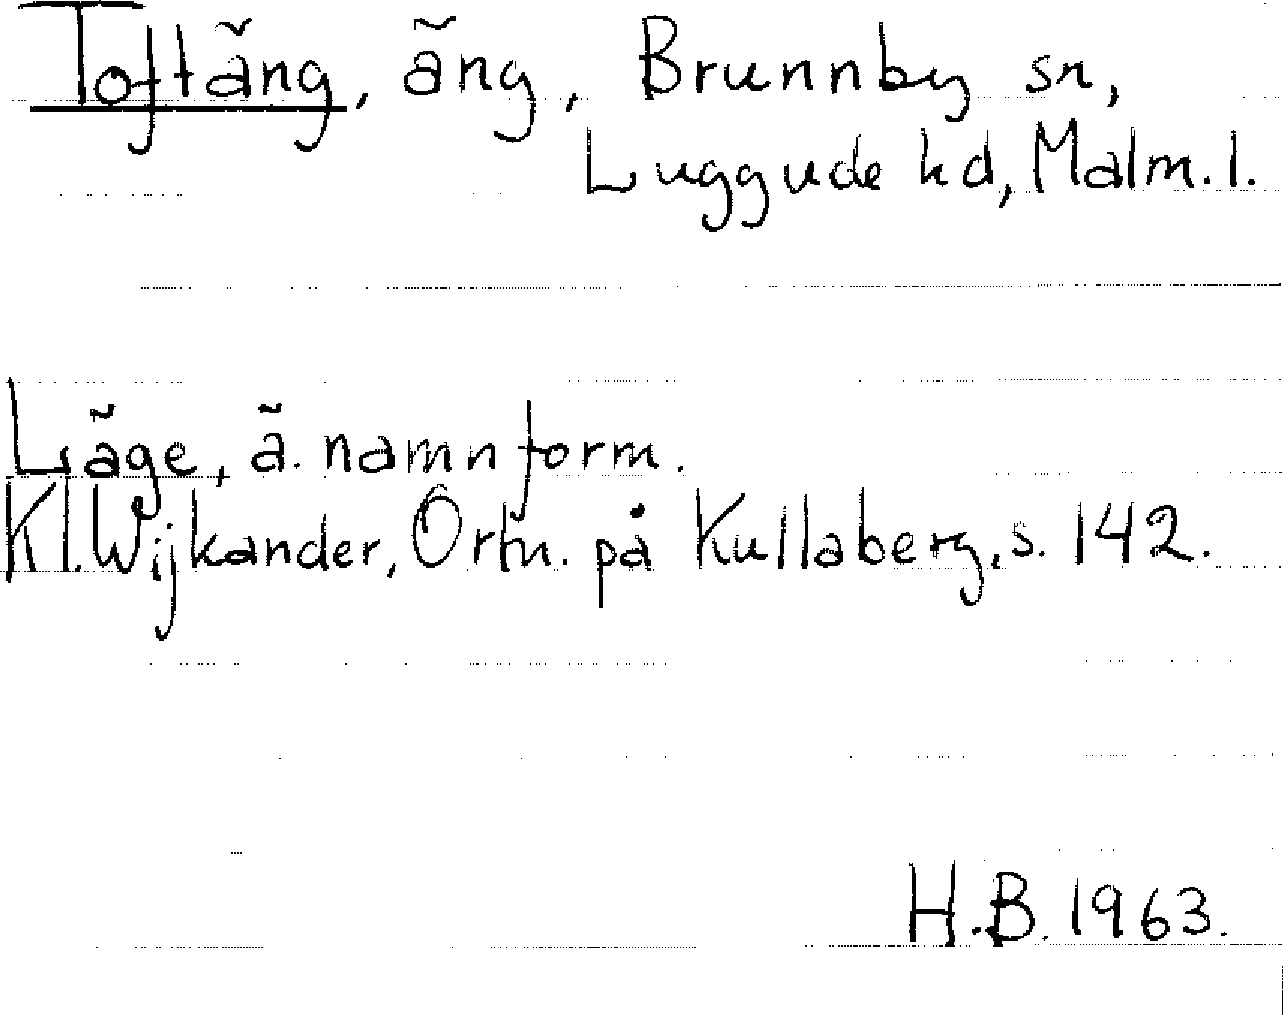 Toftäng, äng, Brunnby sn,
Luggude hd, Malm. l.
Läge, ä. namnform.
Kl. Wijkander, Ortn. på Kullaberg, s. 142.
H.B. 1963.